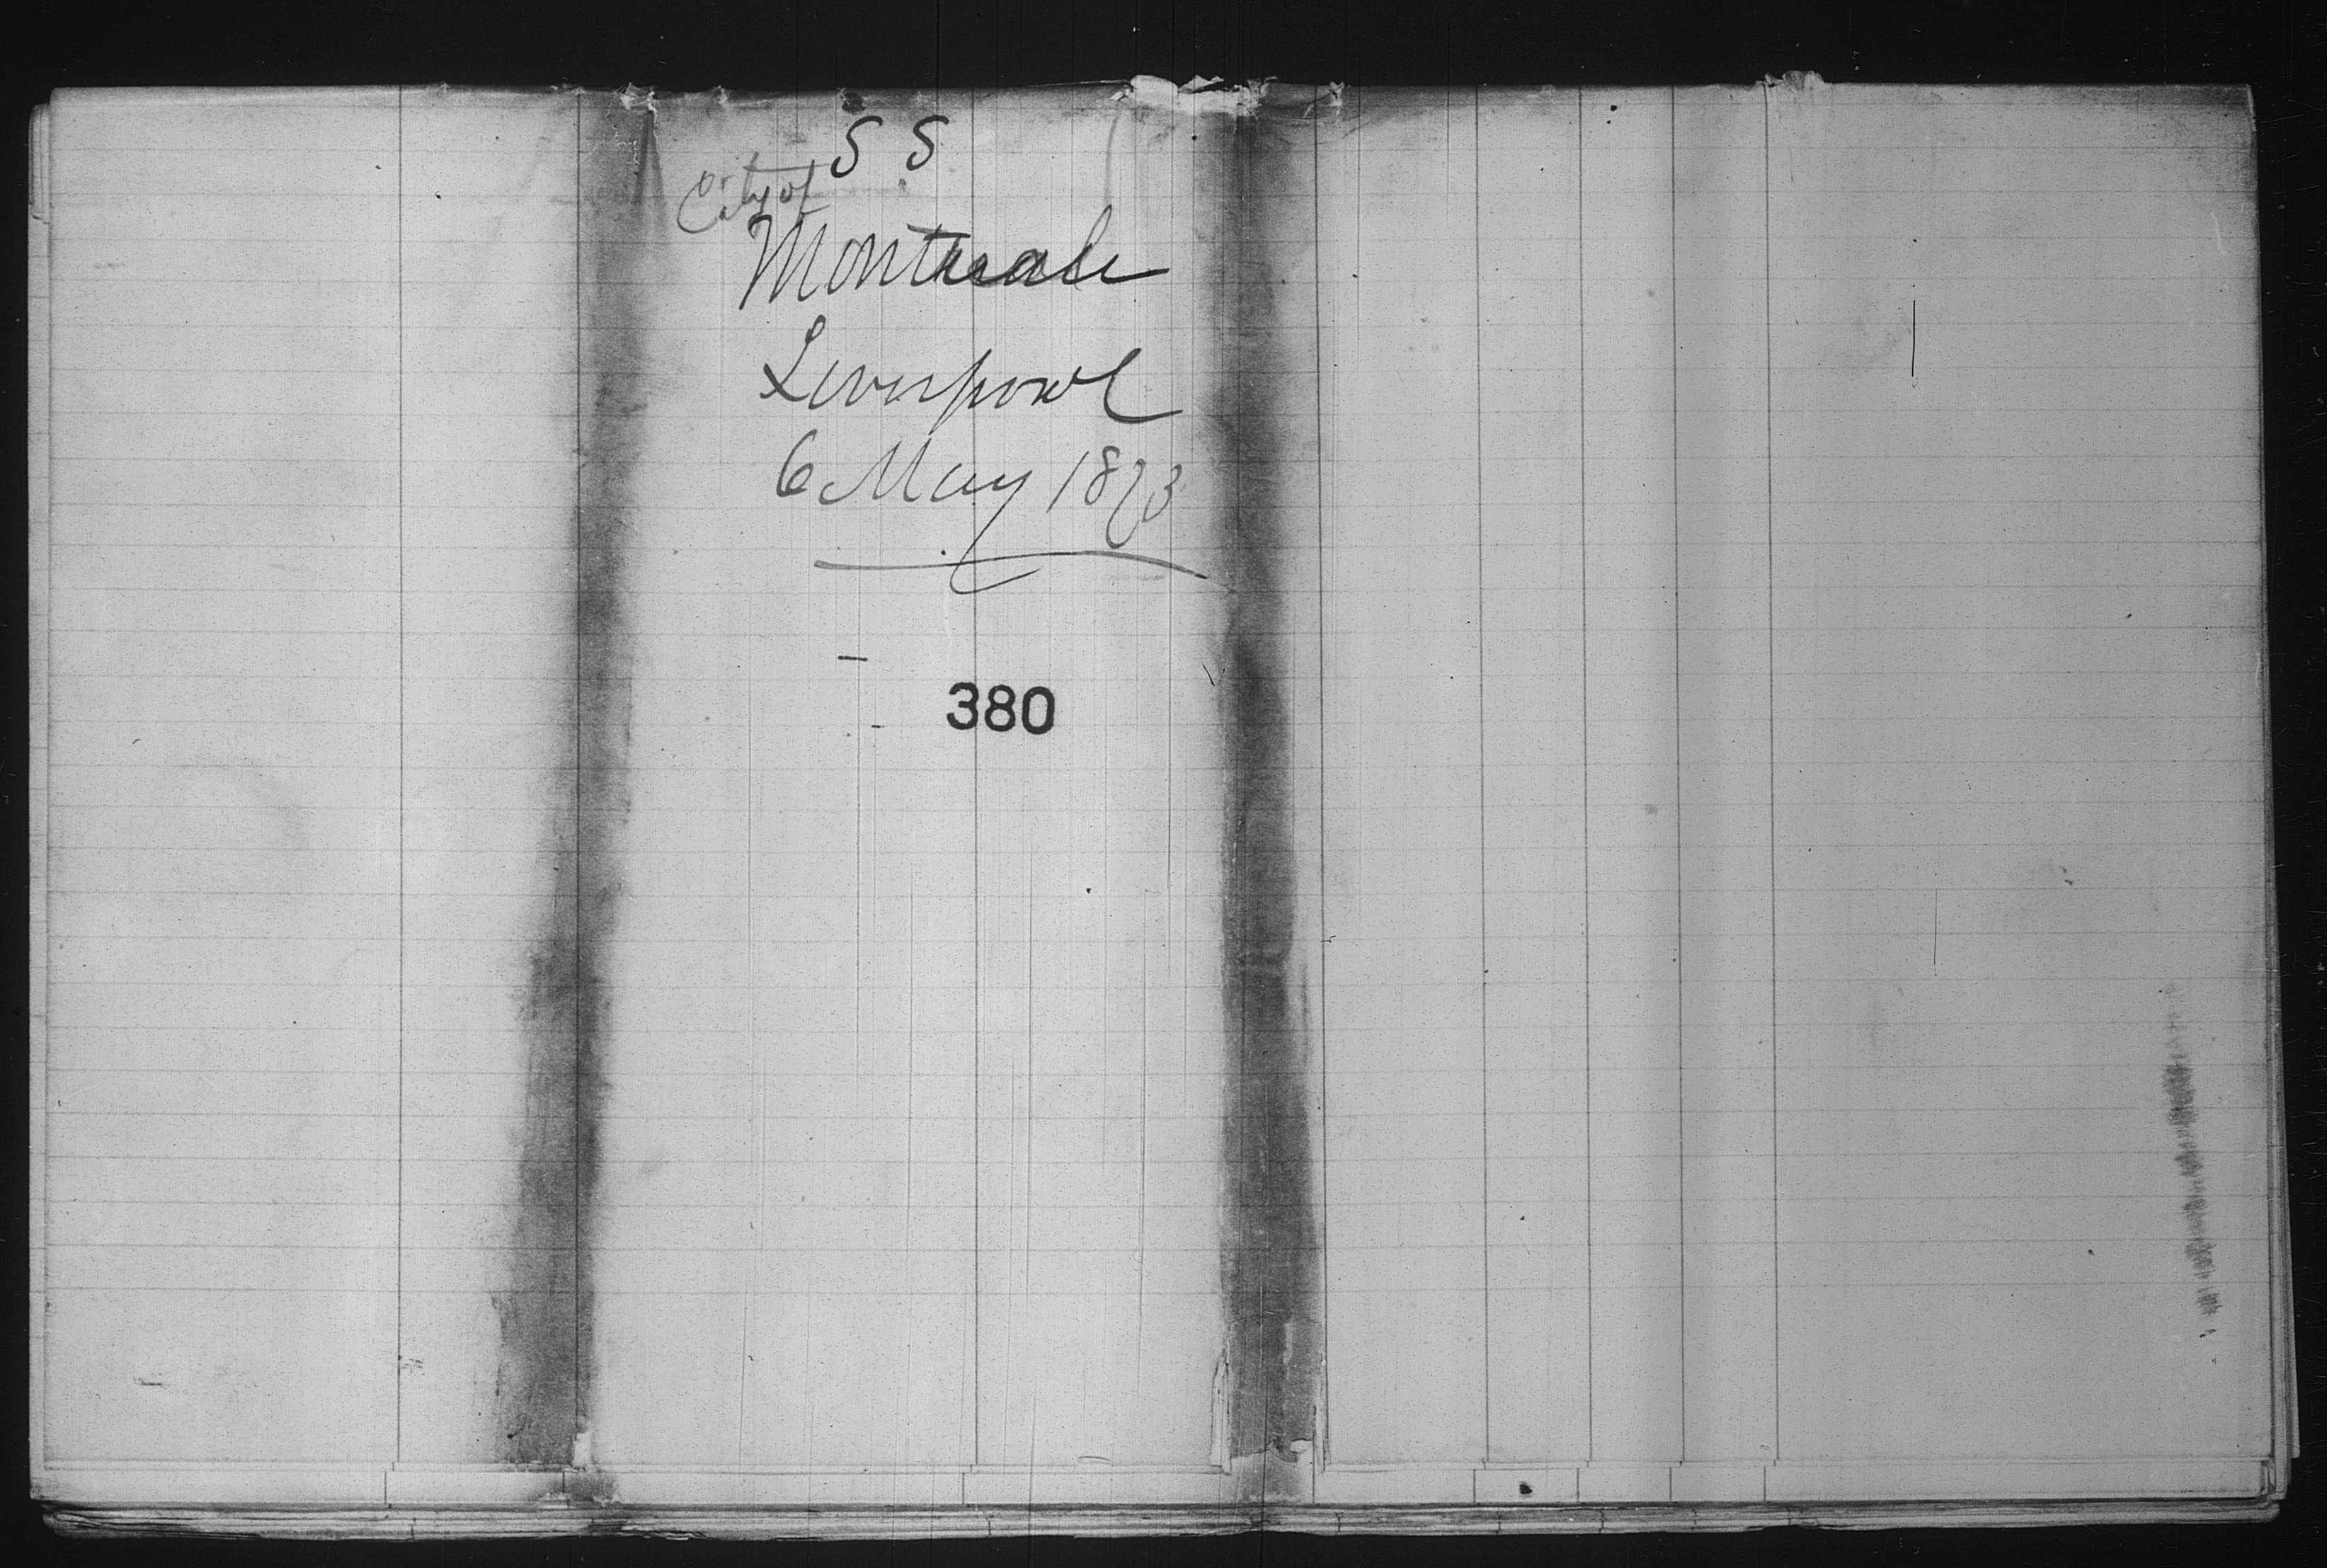 S S
City of
Montreale
Liverpool
6 May 1873
380